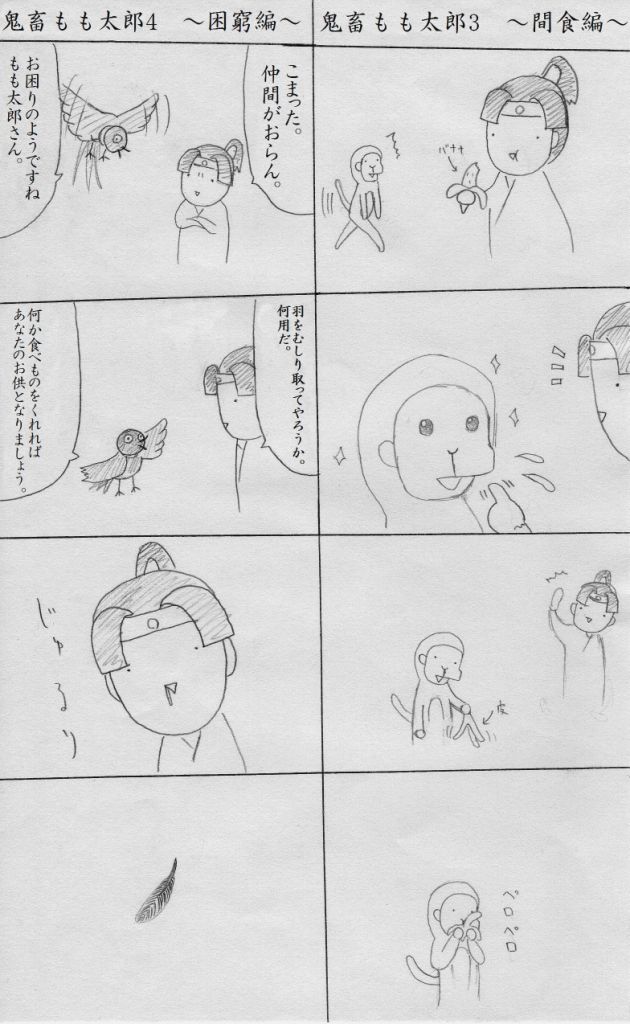 鬼畜もも太郎3　～間食編～
バナナ
皮
ペロペロ
鬼畜もも太郎4　～困窮編～
こまった。
仲間がおらん。
お困りのようですね
もも太郎さん。
羽をむしり取ってやろうか。
何用だ。
何か食べものをくれれば
あなたのお供となりましょう。
じゅるり